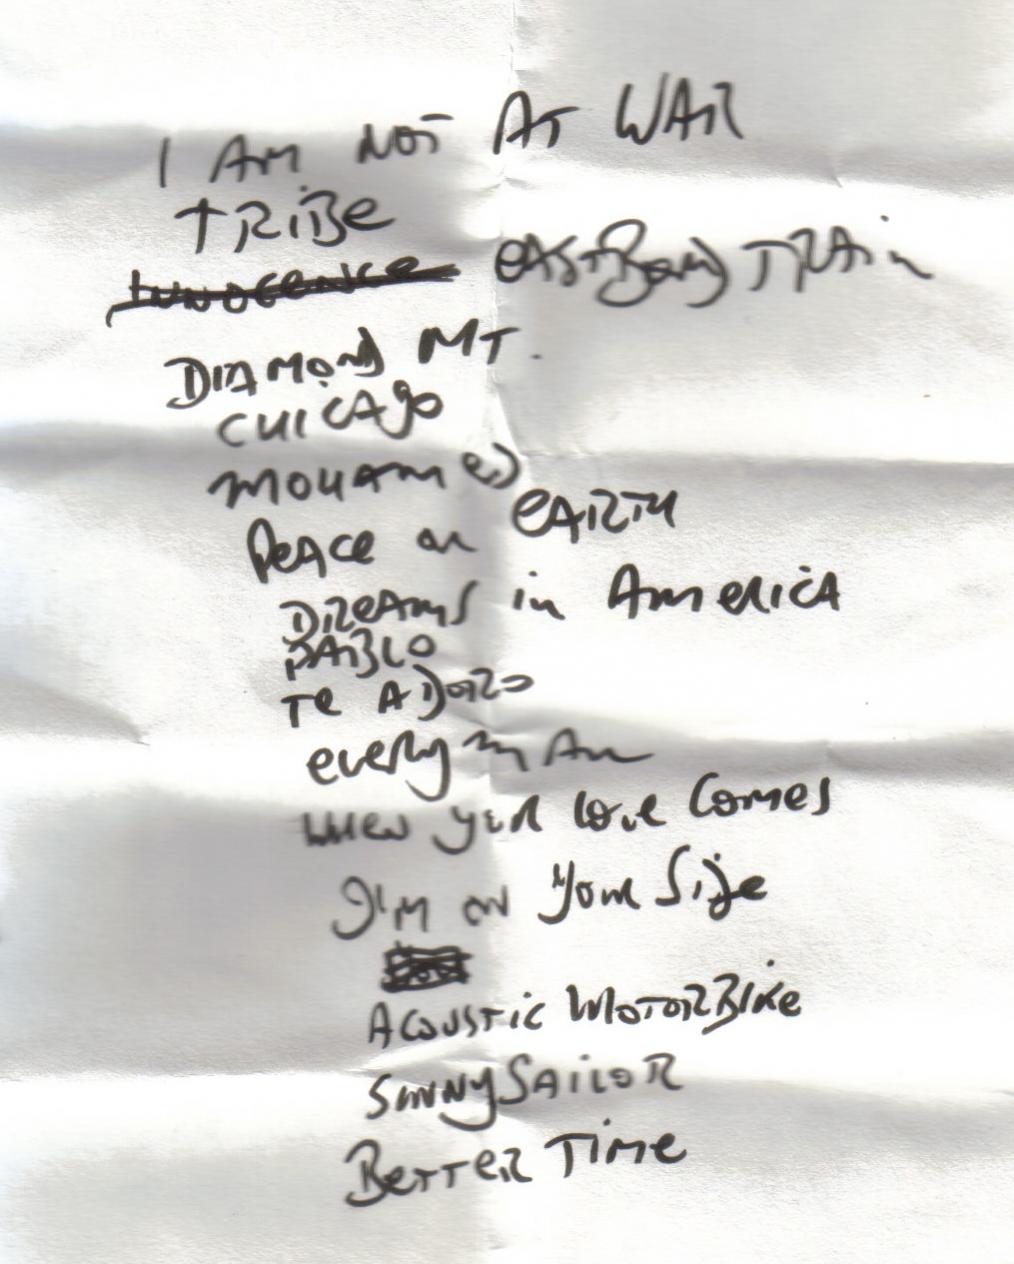 I AM NOT AT WAR
TRIBE
INNOCENCE EASTBOUND TRAIN
DIAMOND MT.
CHICAGO
MOHAMED
PEACE on EARTH
DREAMS in AMERICA
PABLO
Te ADORO
everyman
When your love Comes
I'M on Your Side
ACOUSTIC MOTORBIKE
SUNNY SAILOR
BETTER TIME